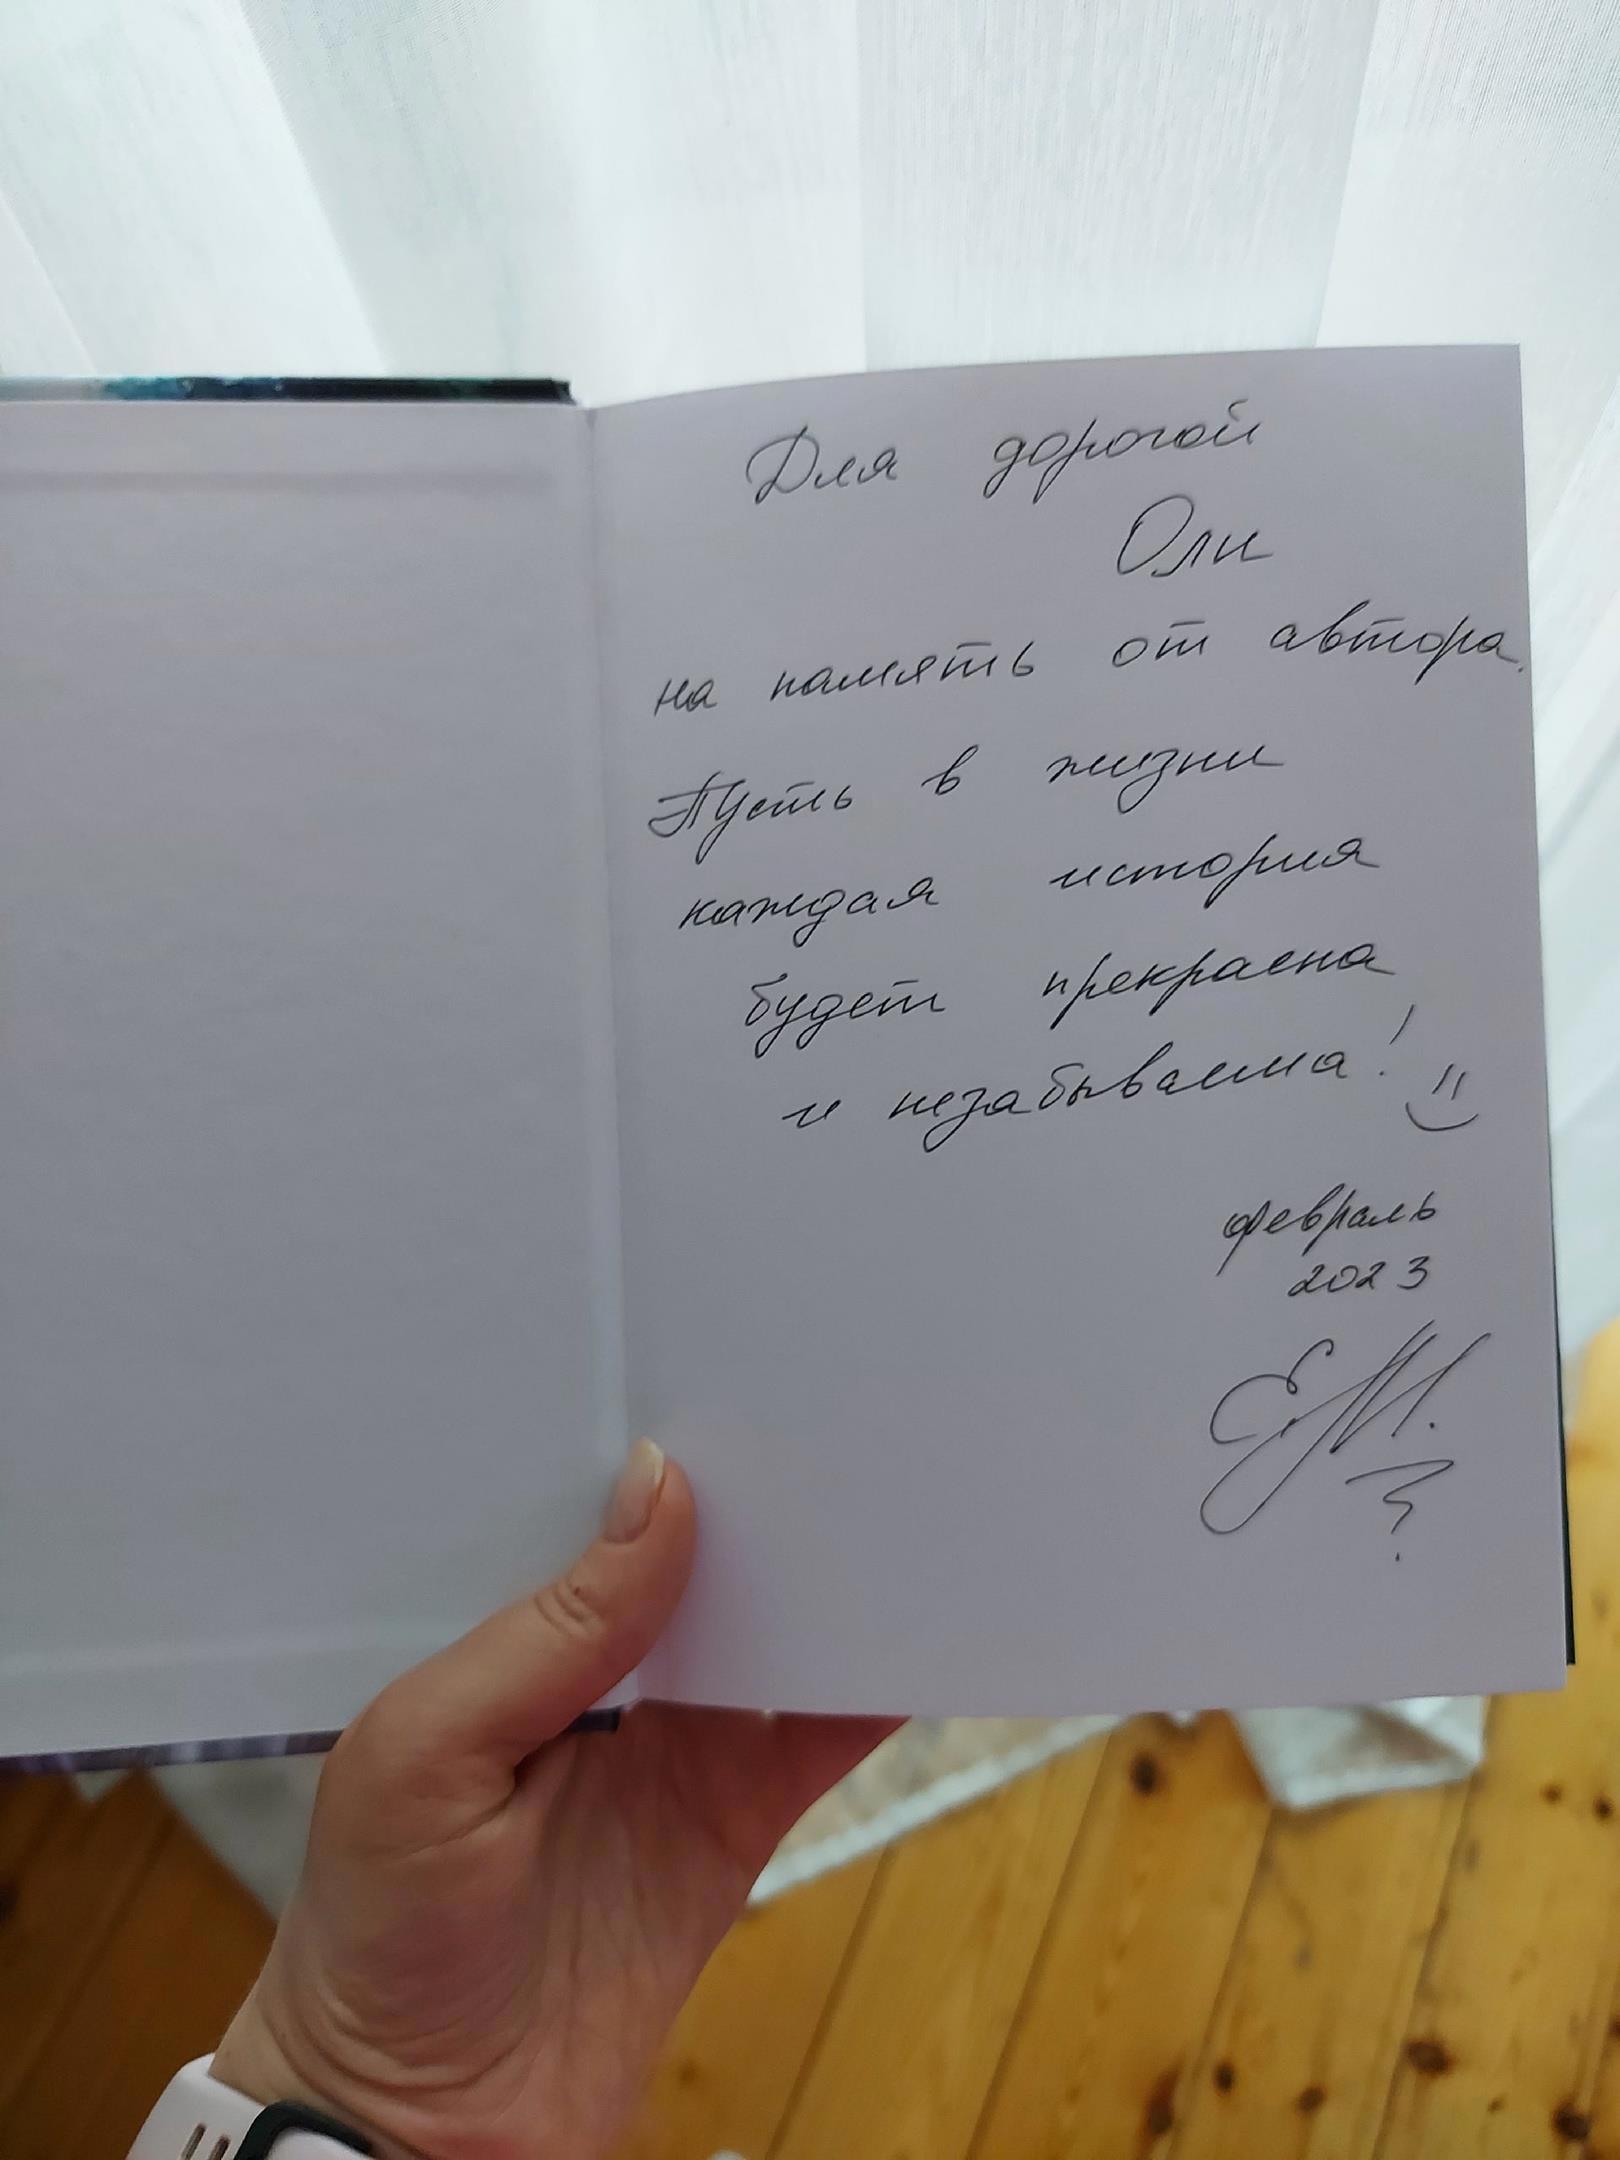 Для дорогой
Оли
на память от автора.
Пусть в жизни
каждая история
будет прекрасна
и незабываема!
февраль
2023
ЕМ.